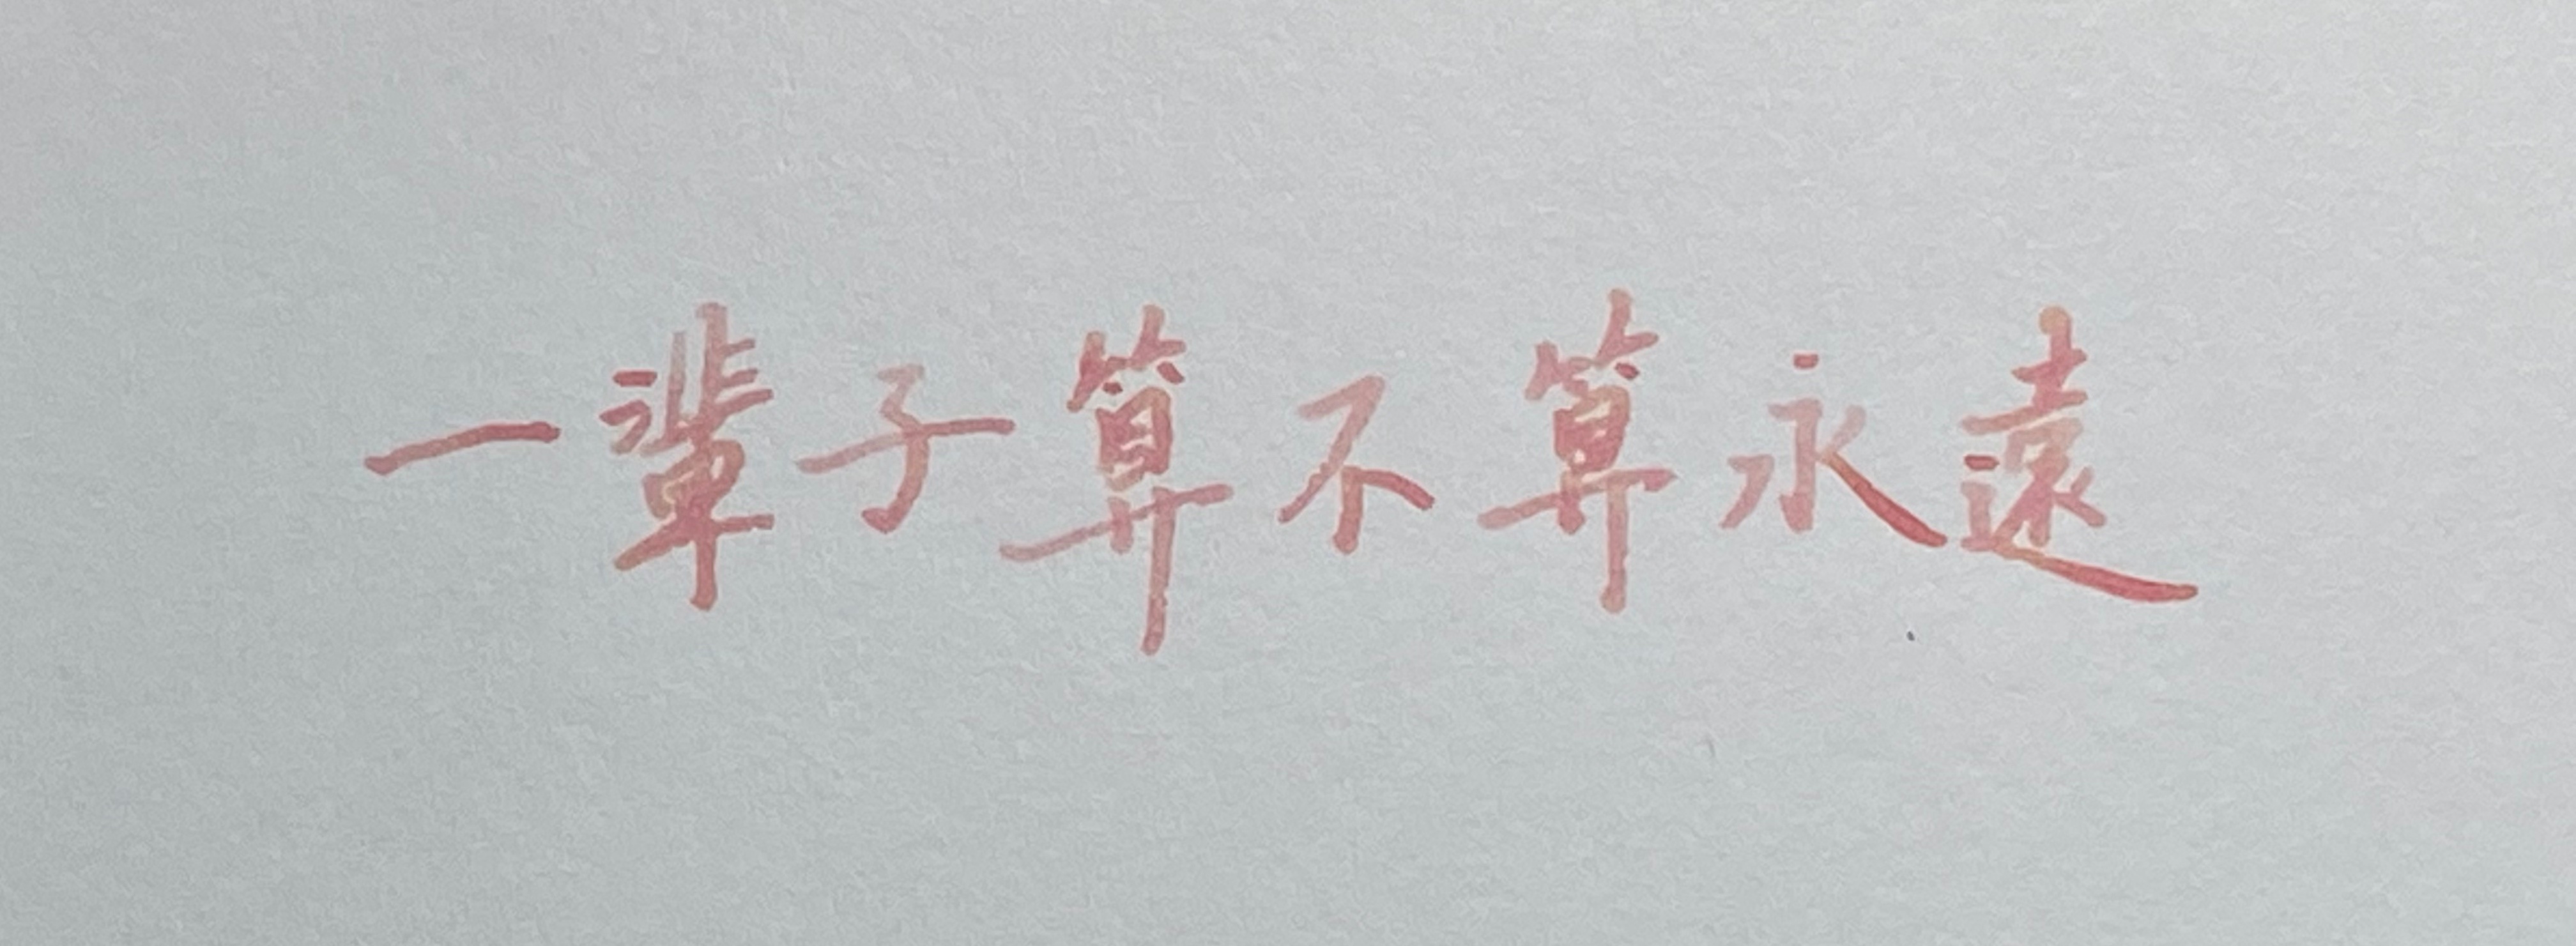 一輩子算不算永遠